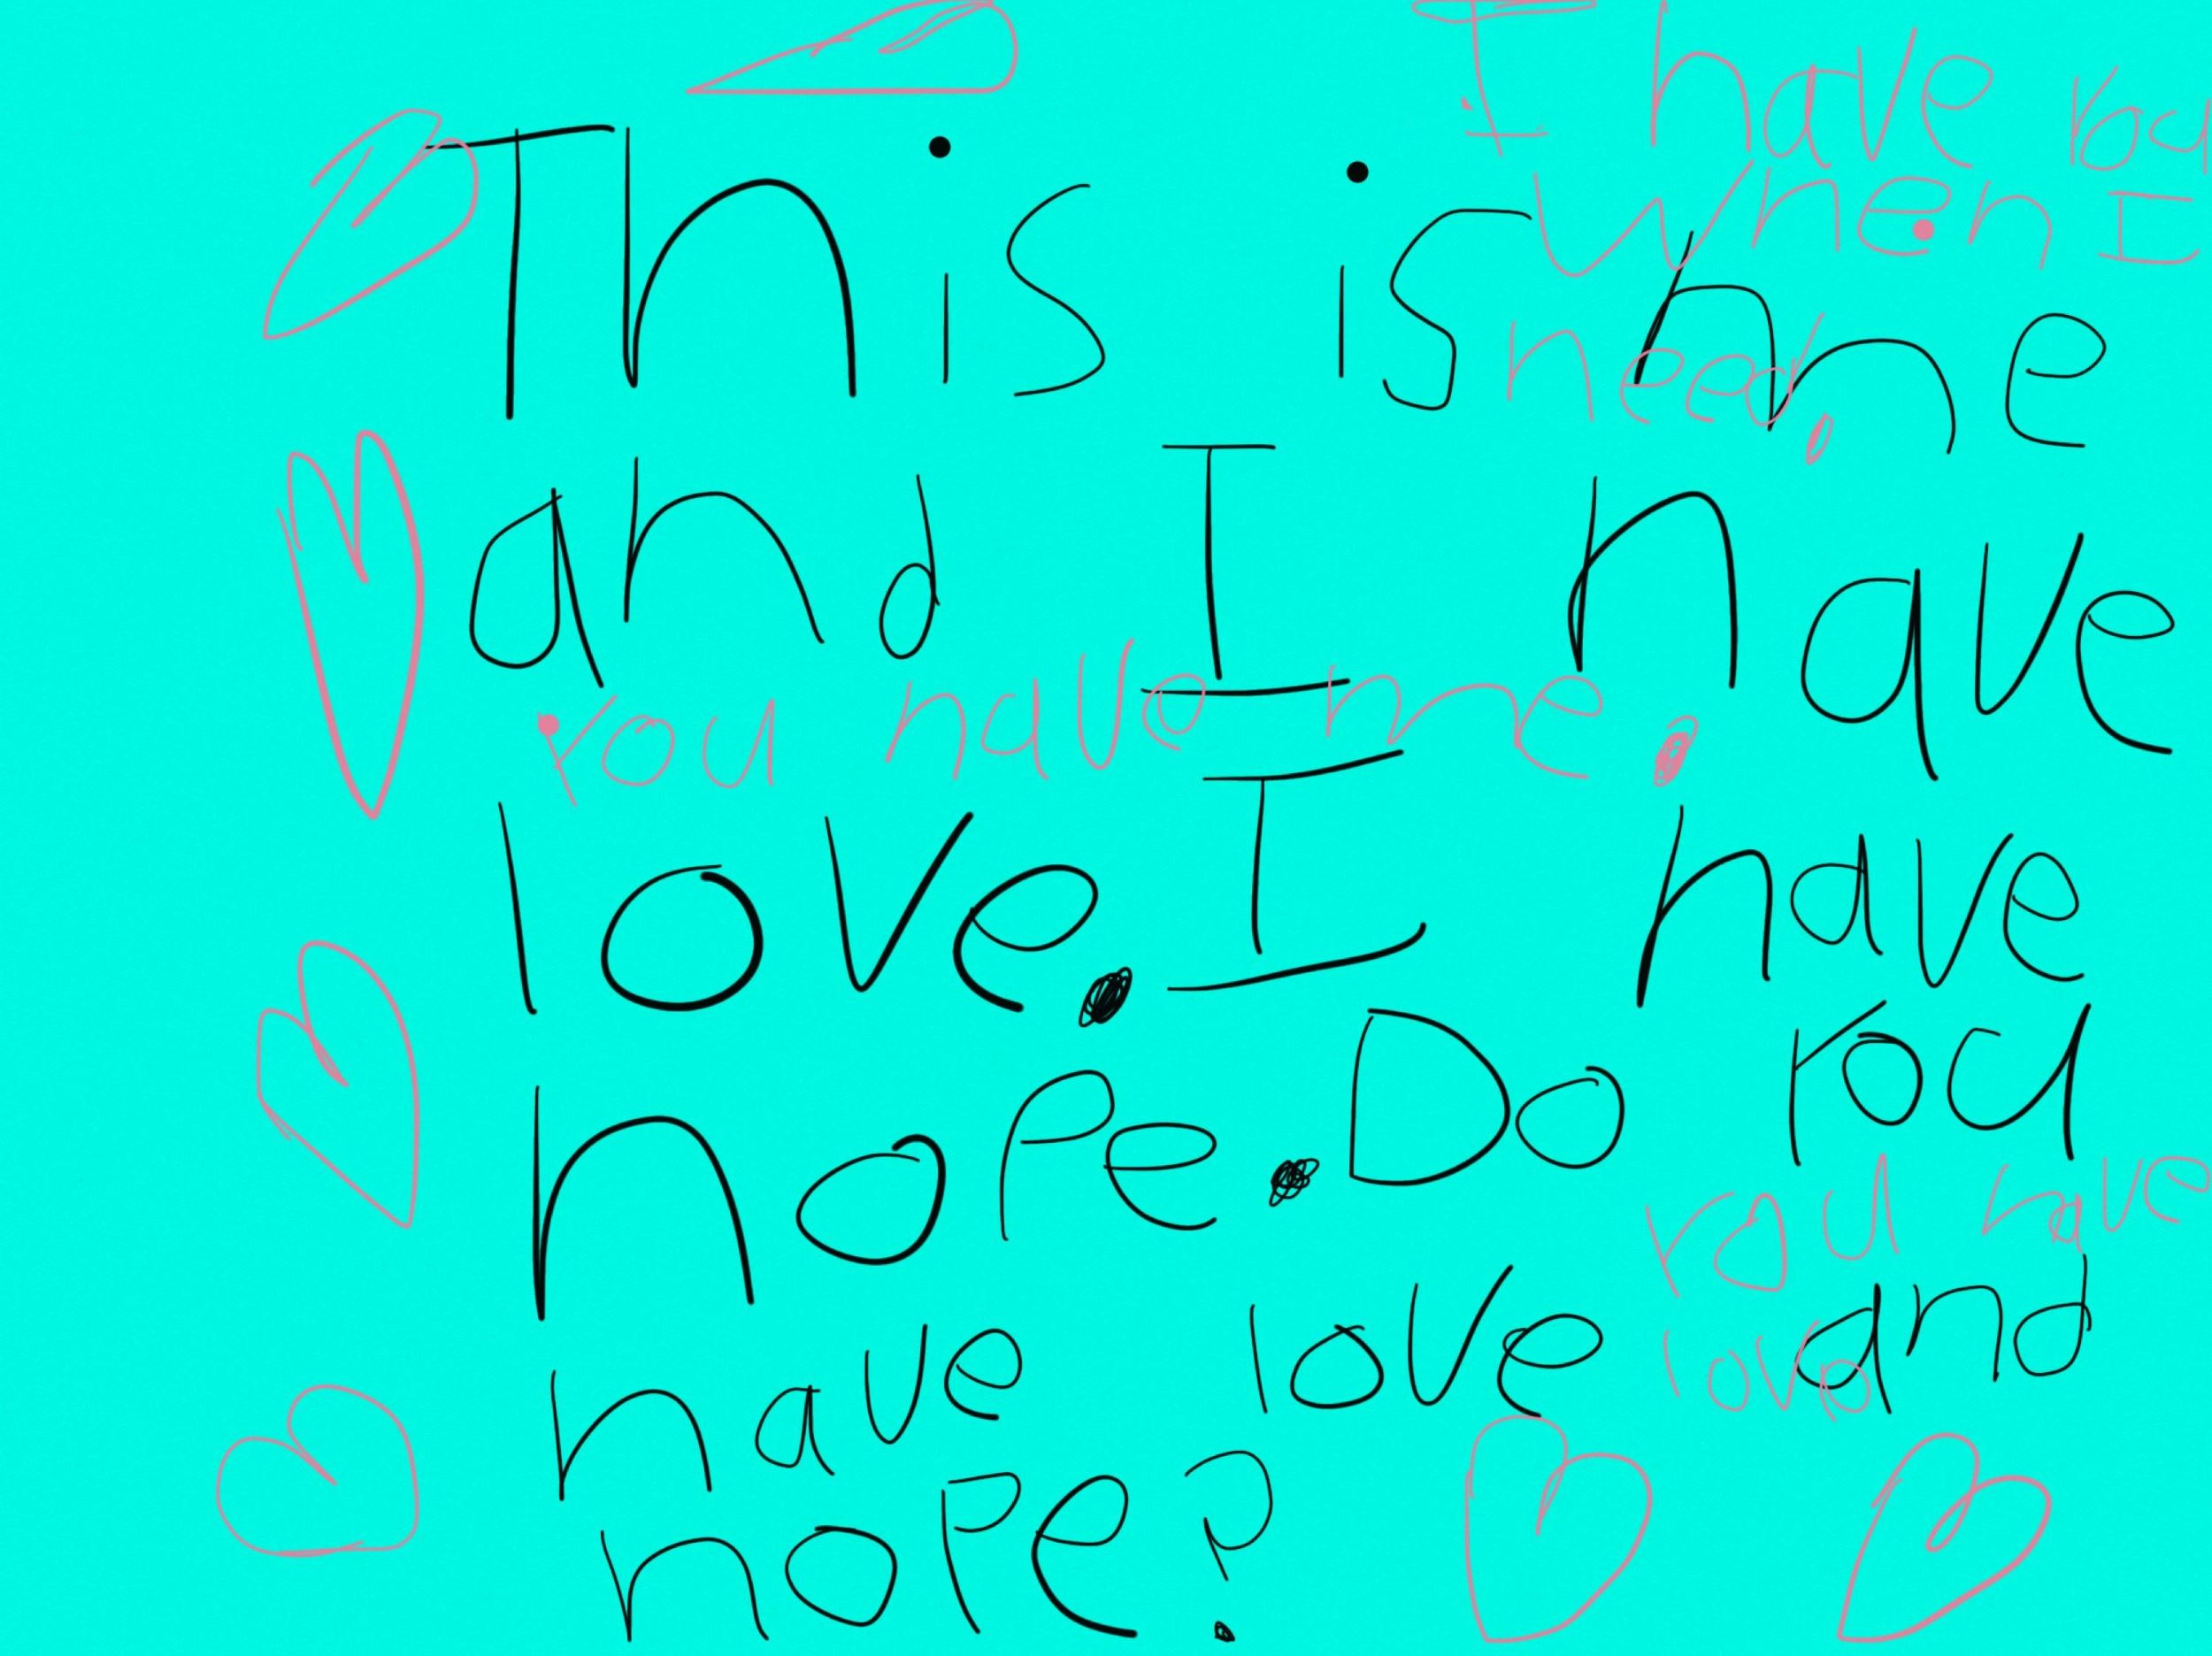 I have you
when I
need.
This is me
and I have
You have me.
love. I have
hope. Do you
You have
love
have love and
hope?